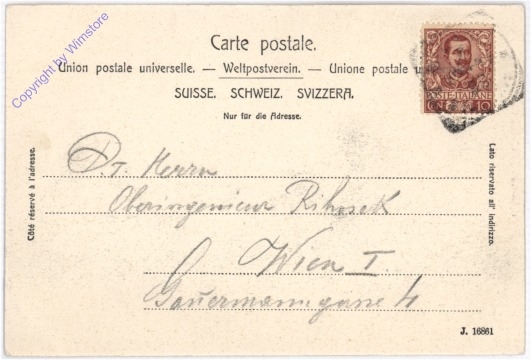 Copyright by Winstore
Carte postale.
Union postale universelle. — Weltpostverein. — Unione postale
SUISSE. SCHWEIZ. SVIZZERA.
Nur für die Adresse.
POSTE ITALIANE
10
Côté réservé à l'adresse.
Lato riservato all' indirizzo.
Herrn
Oberingenieur Rihosek
Wien I.
Gauermanngasse 4
J. 16861